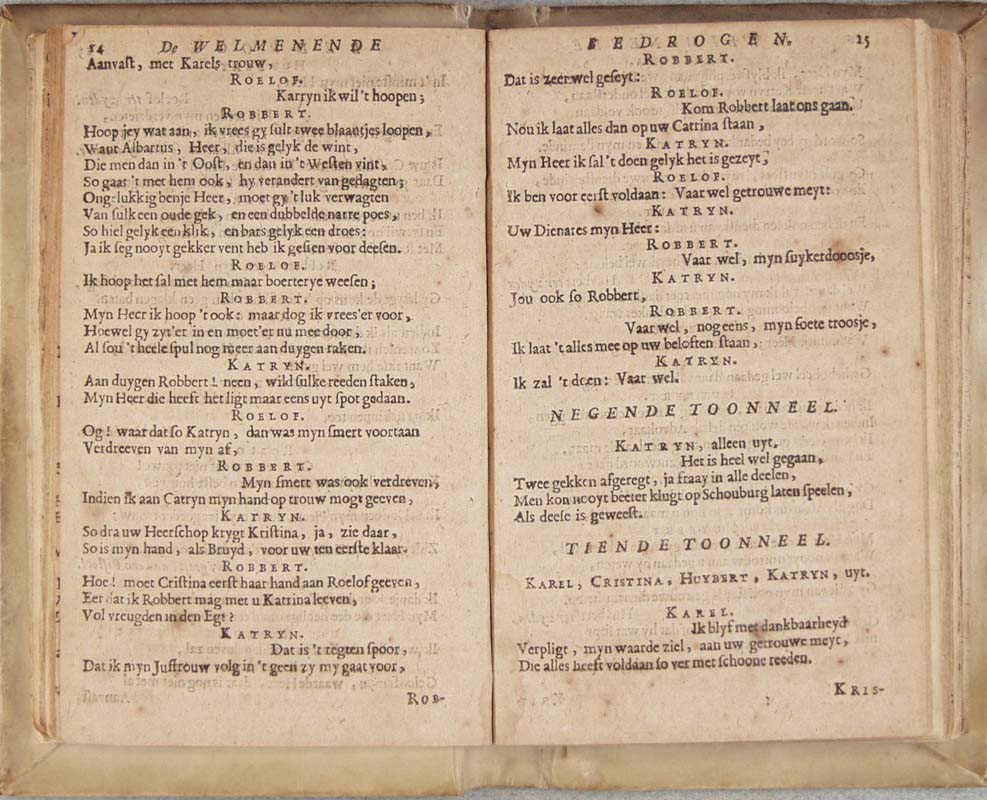 14 De WELMENENDE
Aanvaſt, met Karels trouw,
ROELOF.
Karryn ik wil 't hoopen;
ROBBERT.
Hoop jey wat aan, ik vrees gy ſult twee blaantjes loopen,
Want Albartus, Heer, die is gelyk de wint,
Die men dan in 't Ooſt, en dan in 't Weſten vint,
So gaat 't met hem ook, hy verandert van gedagten;
Ong-lukkig benje Heer, moet gy 't luk verwagten
Van ſulk een oude gek, en een dubbelde narre poes,
So hiel gelyk een klik, en bars gelyk een droes:
Ja ik ſeg nooyt gekker vent heb ik geſien voor deeſen.
ROELOF.
Ik hoop het ſal met hem maar boerterye weeſen;
ROBBERT.
Myn Heer ik hoop 't ook: maar dog ik vrees'er voor,
Hoewel gy zyt'er in en moet'er nu mee door,
Al ſou 't heele ſpul nog meer aan duygen raken.
KATRYN.
Aan duygen Robbert! neen, wild ſulke reeden ſtaken,
Myn Heer die heeft het ligt maar eens uyt ſpot gedaan.
ROELOF.
Og! waar dat ſo Katryn, dan was myn ſmert voortaan
Verdreeven van my af,
ROBBERT.
Myn ſmert was ook verdreven,
Indien ik aan Catryn myn hand op trouw mogt geeven,
KATRYN.
So dra uw Heerſchop krygt Kriſtina, ja, zie daar,
So is myn hand, als Bruyd, voor uw ten eerſte klaar.
ROBBERT.
Hoe! moet Criſtina eerſt haar hand aan Roelof geeven,
Eer dat ik Robbert mag met u Katrina leeven,
Vol vreugden in den Egt?
KATRYN.
Dat is 't regten ſpoor,
Dat ik myn Juffrouw volg in 't geen zy my gaat voor,
ROB-
BEDROGEN. 25
ROBBERT.
Dat is zeer wel geſeyt:
ROELOF.
Kom Robbert laat ons gaan.
Nou ik laat alles dan op uw Catrina ſtaan,
KATRYN.
Myn Heer ik ſal 't doen gelyk het is gezeyt,
ROELOF.
Ik ben voor eerſt voldaan: Vaar wel getrouwe meyt:
KATRYN.
Uw Dienares myn Heer:
ROBBERT.
Vaar wel, myn ſuykerdooosje,
KATRYN.
Jou ook ſo Robbert,
ROBBERT.
Vaar wel, nog eens, myn ſoete troosje,
Ik laat 't alles mee op uw beloften ſtaan,
KATRYN.
Ik zal 't doen: Vaar wel.
NEGENDE TOONNEEL.
KATRYN, alleen uyt.
Het is heel wel gegaan,
Twee gekken afgeregt, ja fraay in alle deelen,
Men kon nooyt beeter klugt op Schouburg laten ſpeelen,
Als deeſe is geweeſt.
TIENDE TOONNEEL.
KAREL, CRISTINA, HUYBERT, KATRYN, uyt.
KAREL.
Ik blyf met dankbaarheyd
Verpligt, myn waarde ziel, aan uw getrouwe meyt,
Die alles heeft voldaan ſo ver met ſchoone reeden.
KRIS-